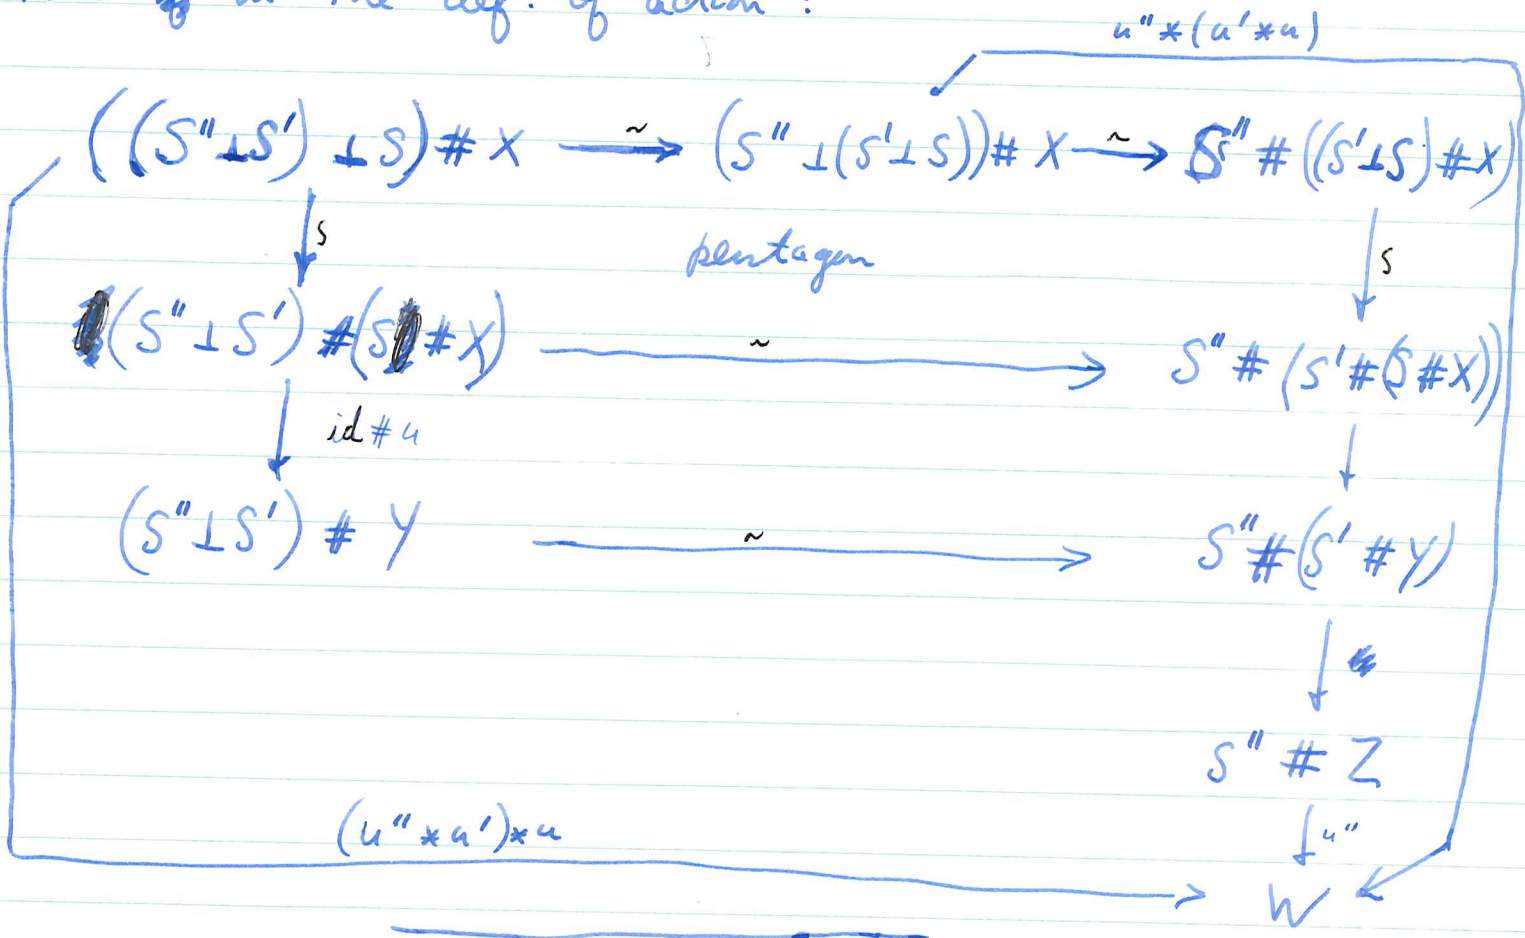 in the def. of action?
u″*(u′*u)
((S″⊥S′)⊥S)#X ⟶ ~ (S″⊥(S′⊥S))#X ⟶ ~ S″#((S′⊥S)#X)
s
pentagon
s
(S″⊥S′)#(S#X) ⟶ ~ S″#(S′#(S#X))
id#u
(S″⊥S′)#Y ⟶ ~ S″#(S′#Y)
S″#Z
(u″*u′)*u
u″
W